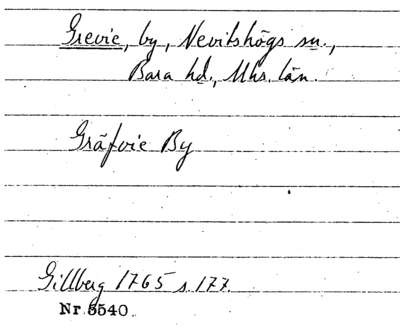 Grevie, by, Nevitshögs sn.,
Bara hd., Mhs. län.
Gräfvie By
Gillberg 1765 s. 177.
Nr 5540.